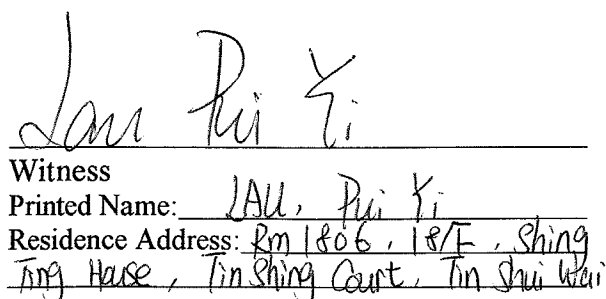 Lau Pui Yi
Witness
Printed Name: LAU, Pui Yi
Residence Address: Rm 1806, 18/F, Shing
Ting House, Tin Shing Court, Tin Shui Wai